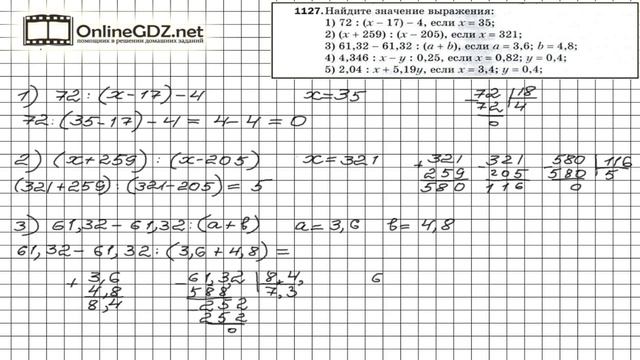 OnlineGDZ.net
помощник в решении домашних заданий
1127. Найдите значение выражения:
1) 72 : (x − 17) − 4, если x = 35;
2) (x + 259) : (x − 205), если x = 321;
3) 61,32 − 61,32 : (a + b), если a = 3,6; b = 4,8;
4) 4,346 : x − y : 0,25, если x = 0,82; y = 0,4;
5) 2,04 : x + 5,19y, если x = 3,4; y = 0,4;
1) 72 : (x-17) - 4 x = 35
72 : (35-17) - 4 = 4 - 4 = 0
- 72 | 18
72 4
0
2) (x+259) : (x-205) x = 321
(321+259) : (321-205) = 5
+ 321 - 321 - 580 | 116
259 205 580 5
580 116 0
3) 61,32 - 61,32 : (a+b) a = 3,6 b = 4,8
61,32 - 61,32 : (3,6 + 4,8) =
+ 3,6 - 61,32 | 8,4 6
4,8 588 7,3
8,4 - 252
252
0